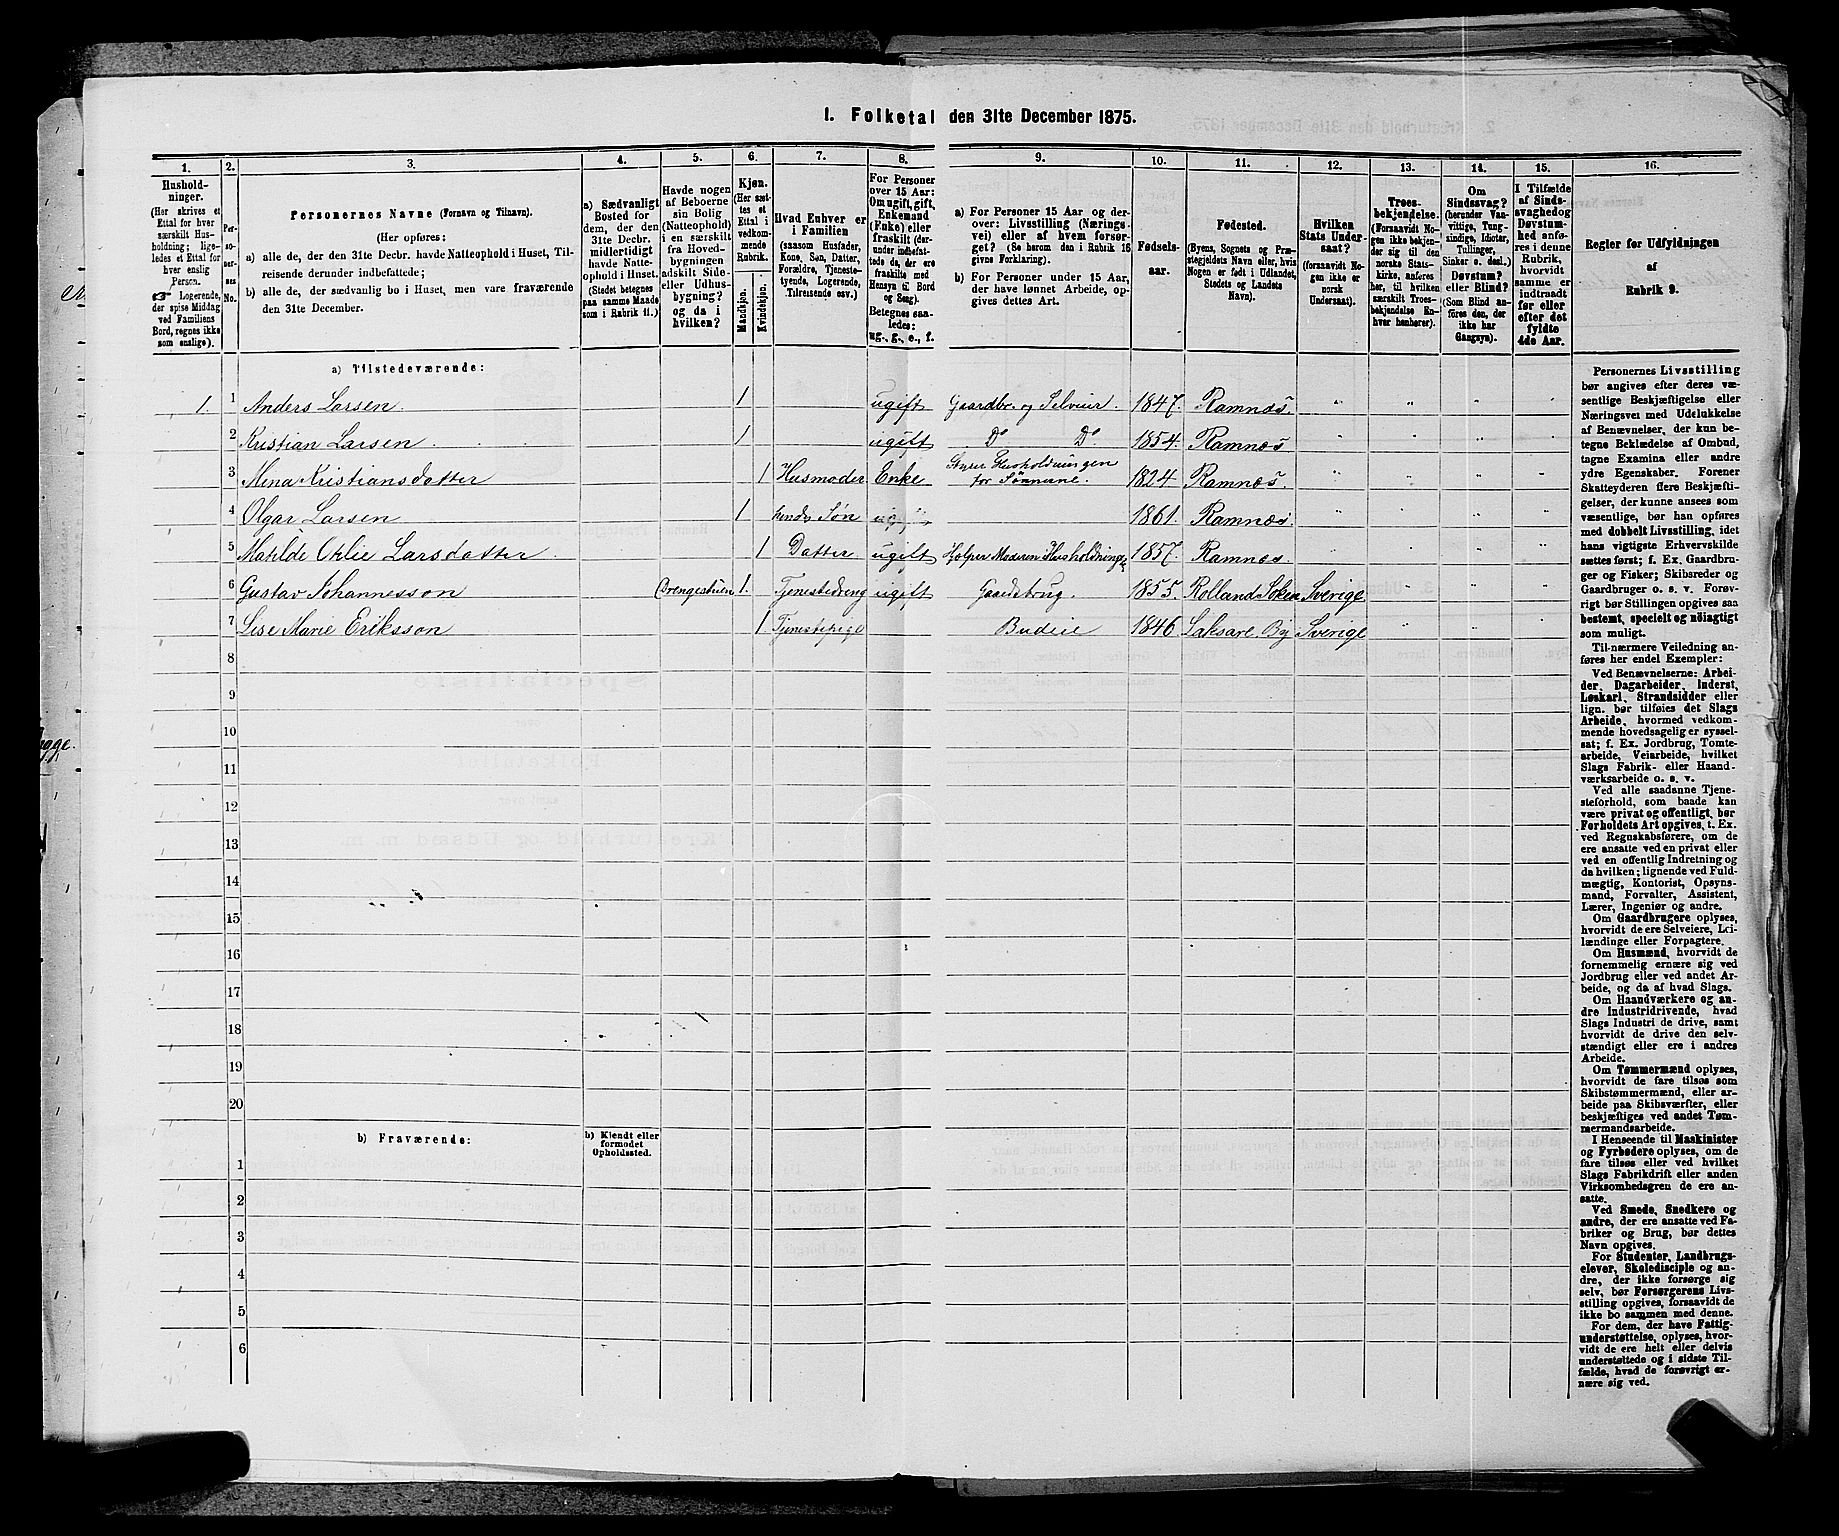 1. Folketal den 31te December 1875.
1. 2. 3. 4. 5. 6. 7. 8. 9. 10. 11. 12. 13. 14. 15. 16.
Hushold-
ninger.
(Her skrives et
Ettal for hver
særskilt Hus-
holdning; lige-
ledes et Ettal for
hver enslig
Person.
☞ Logerende,
der spise Middag
ved Familiens
Bord, regnes ikke
som enslige).
Per-
so-
ner-
nes
No.
Personernes Navne (Fornavn og Tilnavn).
(Her opføres:
a) alle de, der den 31te Decbr. havde Natteophold i Huset, Til-
reisende derunder indbefattede;
b) alle de, der sædvanlig bo i Huset, men vare fraværende
den 31te December.
a) Sædvanligt
Bosted for
dem, der den
31te Decbr.
midlertidigt
havde Natte-
ophold i Huset.
(Stedet betegnes
paa samme Maade
som i Rubrik 11.)
Havde nogen
af Beboerne
sin Bolig
(Natteophold)
i en særskilt
fra Hoved-
bygningen
adskilt Side-
eller Udhus-
bygning?
og da i
hvilken?
Kjøn.
(Her sæt-
tes et
Ettal i
vedkom-
mende
Rubrik.
Mandkjøn.
Kvindekjøn.
Hvad Enhver er
i Familien
(saasom Husfader,
Kone, Søn, Datter,
Forældre, Tjeneste-
tyende, Logerende,
Tilreisende osv.)
For Personer
over 15 Aar:
Om ugift, gift,
Enkemand
(Enke) eller
fraskilt (der-
under indbefat-
tede de, der ere
fraskilte med
Hensyn til Bord
og Seng).
Betegnes saa-
ledes:
ug., g., e., f.
a) For Personer 15 Aar og der-
over: Livsstilling (Nærings-
vei) eller af hvem forsør-
get? (Se herom den i Rubrik 16
givne Forklaring).
b) For Personer under 15 Aar,
der have lønnet Arbeide, op-
gives dettes Art.
Fødsels-
aar.
Fødested.
(Byens, Sognets og Præ-
stegjeldets Navn eller, hvis
Nogen er født i Udlandet,
Stedets og Landets
Navn).
Hvilken
Stats Under-
saat?
(forsaavidt No-
gen ikke er
norsk
Undersaat).
Troes-
bekjendelse.
(Forsaavidt No-
gen ikke bekjen-
der sig til den
norske Stats-
kirke, anføres
her, til hvilken
særskilt Troes-
bekjendelse En-
hver henhører).
Om
Sindssvag?
(herunder Van-
vittige, Tung-
sindige, Idioter,
Tullinger,
Sinker o. desl.)
Døvstum?
eller Blind?
(Som Blind an-
føres den, der
ikke har
Gangsyn).
I Tilfælde
af Sinds-
svaghed og
Døvstum-
hed anfø-
res i denne
Rubrik,
hvorvidt
samme er
indtraadt
før eller
efter det
fyldte
4de Aar.
Regler før Udfyldningen
af
Rubrik 9.
a) Tilstedeværende:
1. 1 Anders Larsen. 1 ugift Gaardbr. og Selveier. 1847. Ramnæs.
2 Kristian Larsen. 1 ugift Do Do 1854. Ramnæs
3 Mina Kristiansdatter 1 Husmoder Enke Styrer Husholdningen for Sønnerne. 1824 Ramnæs.
4 Olgar Larsen 1 hendes Søn 1861. Ramnæs.
5 Matilde Otilie Larsdatter. 1 Datter ugift Hjelper Moderen i Husholdningen 1857. Ramnæs.
6 Gustav Johannesson Drengestuen 1. Tjenestedreng ugift Gaardsbrug. 1855. Rolland Soken Sverige
7 Lise Marie Eriksson 1 Tjenestepige Budeie 1846 Laksare By Sverige
8
9
10
11
12
13
14
15
16
17
18
19
20
b) Fraværende:
b) Kjendt eller
formodet
Opholdssted.
1
2
3
4
5
6
Personernes Livsstilling
bør angives efter deres væ-
sentlige Beskjæftigelse eller
Næringsvei med Udelukkelse
af Benævnelser, der kun be-
tegne Beklædelse af Ombud,
tagne Examina eller andre
ydre Egenskaber. Forener
Skatteyderen flere Beskjæfti-
gelser, der kunne ansees som
væsentlige, bør han opføres
med dobbelt Livsstilling, idet
hans vigtigste Erhvervskilde
sættes først; f. Ex. Gaardbru-
ger og Fisker; Skibsreder og
Gaardbruger o. s. v. Forøv-
rigt bør Stillingen opgives saa
bestemt, specielt og nøiagtigt
som muligt.
Til-nærmere Veiledning an-
føres her endel Exempler:
Ved Benævnelserne: Arbei-
der, Dagarbeider, Inderst,
Løskarl, Strandsidder eller
lign. bør tilføies det Slags
Arbeide, hvormed vedkom-
mende hovedsagelig er syssel-
sat; f. Ex. Jordbrug, Tomte-
arbeide, Veiarbeide, hvilket
Slags Fabrik- eller Haand-
værksarbeide o. s. v.
Ved alle saadanne Tjene-
steforhold, som baade kan
være privat og offentligt, bør
Forholdets Art opgives, t. Ex.
ved Regnskabsførere, om de
ere ansatte ved en privat eller
ved en offentlig Indretning og
da hvilken; lignende ved Fuld-
mægtig, Kontorist, Opsyns-
mand, Forvalter, Assistent,
Lærer, Ingeniør og andre.
Om Gaardbrugere oplyses,
hvorvidt de ere Selveiere, Lei-
lændinge eller Forpagtere.
Om Husmænd, hvorvidt de
fornemmelig ernære sig ved
Jordbrug eller ved andet Ar-
beide, og da af hvad Slags.
Om Haandværkere og an-
dre Industridrivende, hvad
Slags Industri de drive, samt
hvorvidt de drive den selv-
stændigt eller ere i andres
Arbeide.
Om Tømmermænd oplyses,
hvorvidt de fare tilsøs som
Skibstømmermænd, eller ar-
beide paa Skibsværfter, eller
beskjæftiges ved andet Tøm-
mermandsarbeide.
I Henseende til Maskinister
og Fyrbødere oplyses, om de
fare tilsøs eller ved hvilket
Slags Fabrikdrift eller anden
Virksomhedsgren de ere an-
satte.
Ved Smede, Snedkere og
andre, der ere ansatte ved Fa-
briker og Brug, bør dettes
Navn opgives.
For Studenter, Landbrugs-
elever, Skoledisciple og an-
dre, der ikke forsørge sig
selv, bør Forsørgerens Livs-
stilling opgives, forsaavidt de
ikke bo sammen med denne.
For dem, der have Fattig-
understøttelse, oplyses, hvor-
vidt de ere helt eller delvis
understøttede og i sidste Til-
fælde, hvad de forøvrigt er-
nære sig ved.